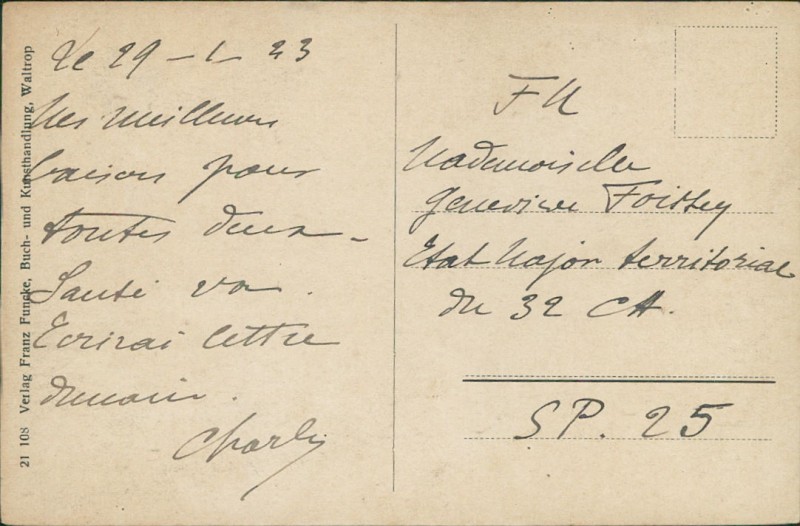 Le 29-1-23
Mes meilleurs
baisers pour
toutes deux -
Santé va.
Ecrirai lettre
demain.
Charly
FM
Mademoiselle
Geneviève Foissey
Etat Major territorial
du 32 CA.
SP. 25
21 108 Verlag Franz Funcke, Buch- und Kunsthandlung, Waltrop